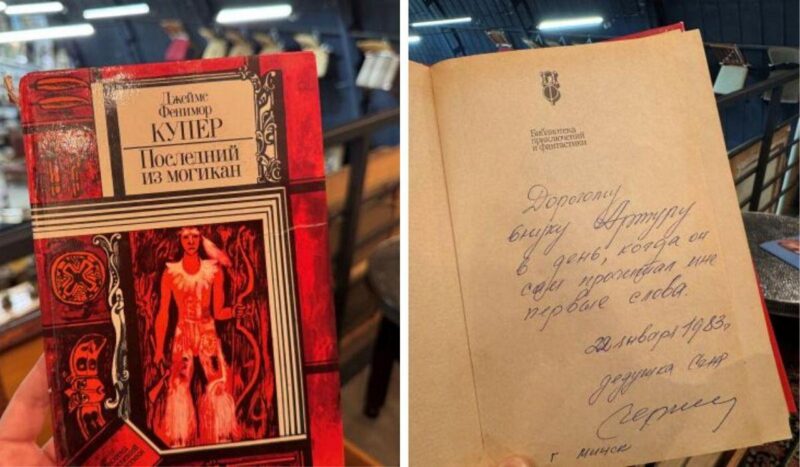 Джеймс
Фенимор
КУПЕР
Последний
из могикан
Библиотека
приключений
и фантастики
Дорогому
внуку Артуру
в день, когда он
сам прочитал мне
первые слова.
22 января 1983г
дедушка
г Минск